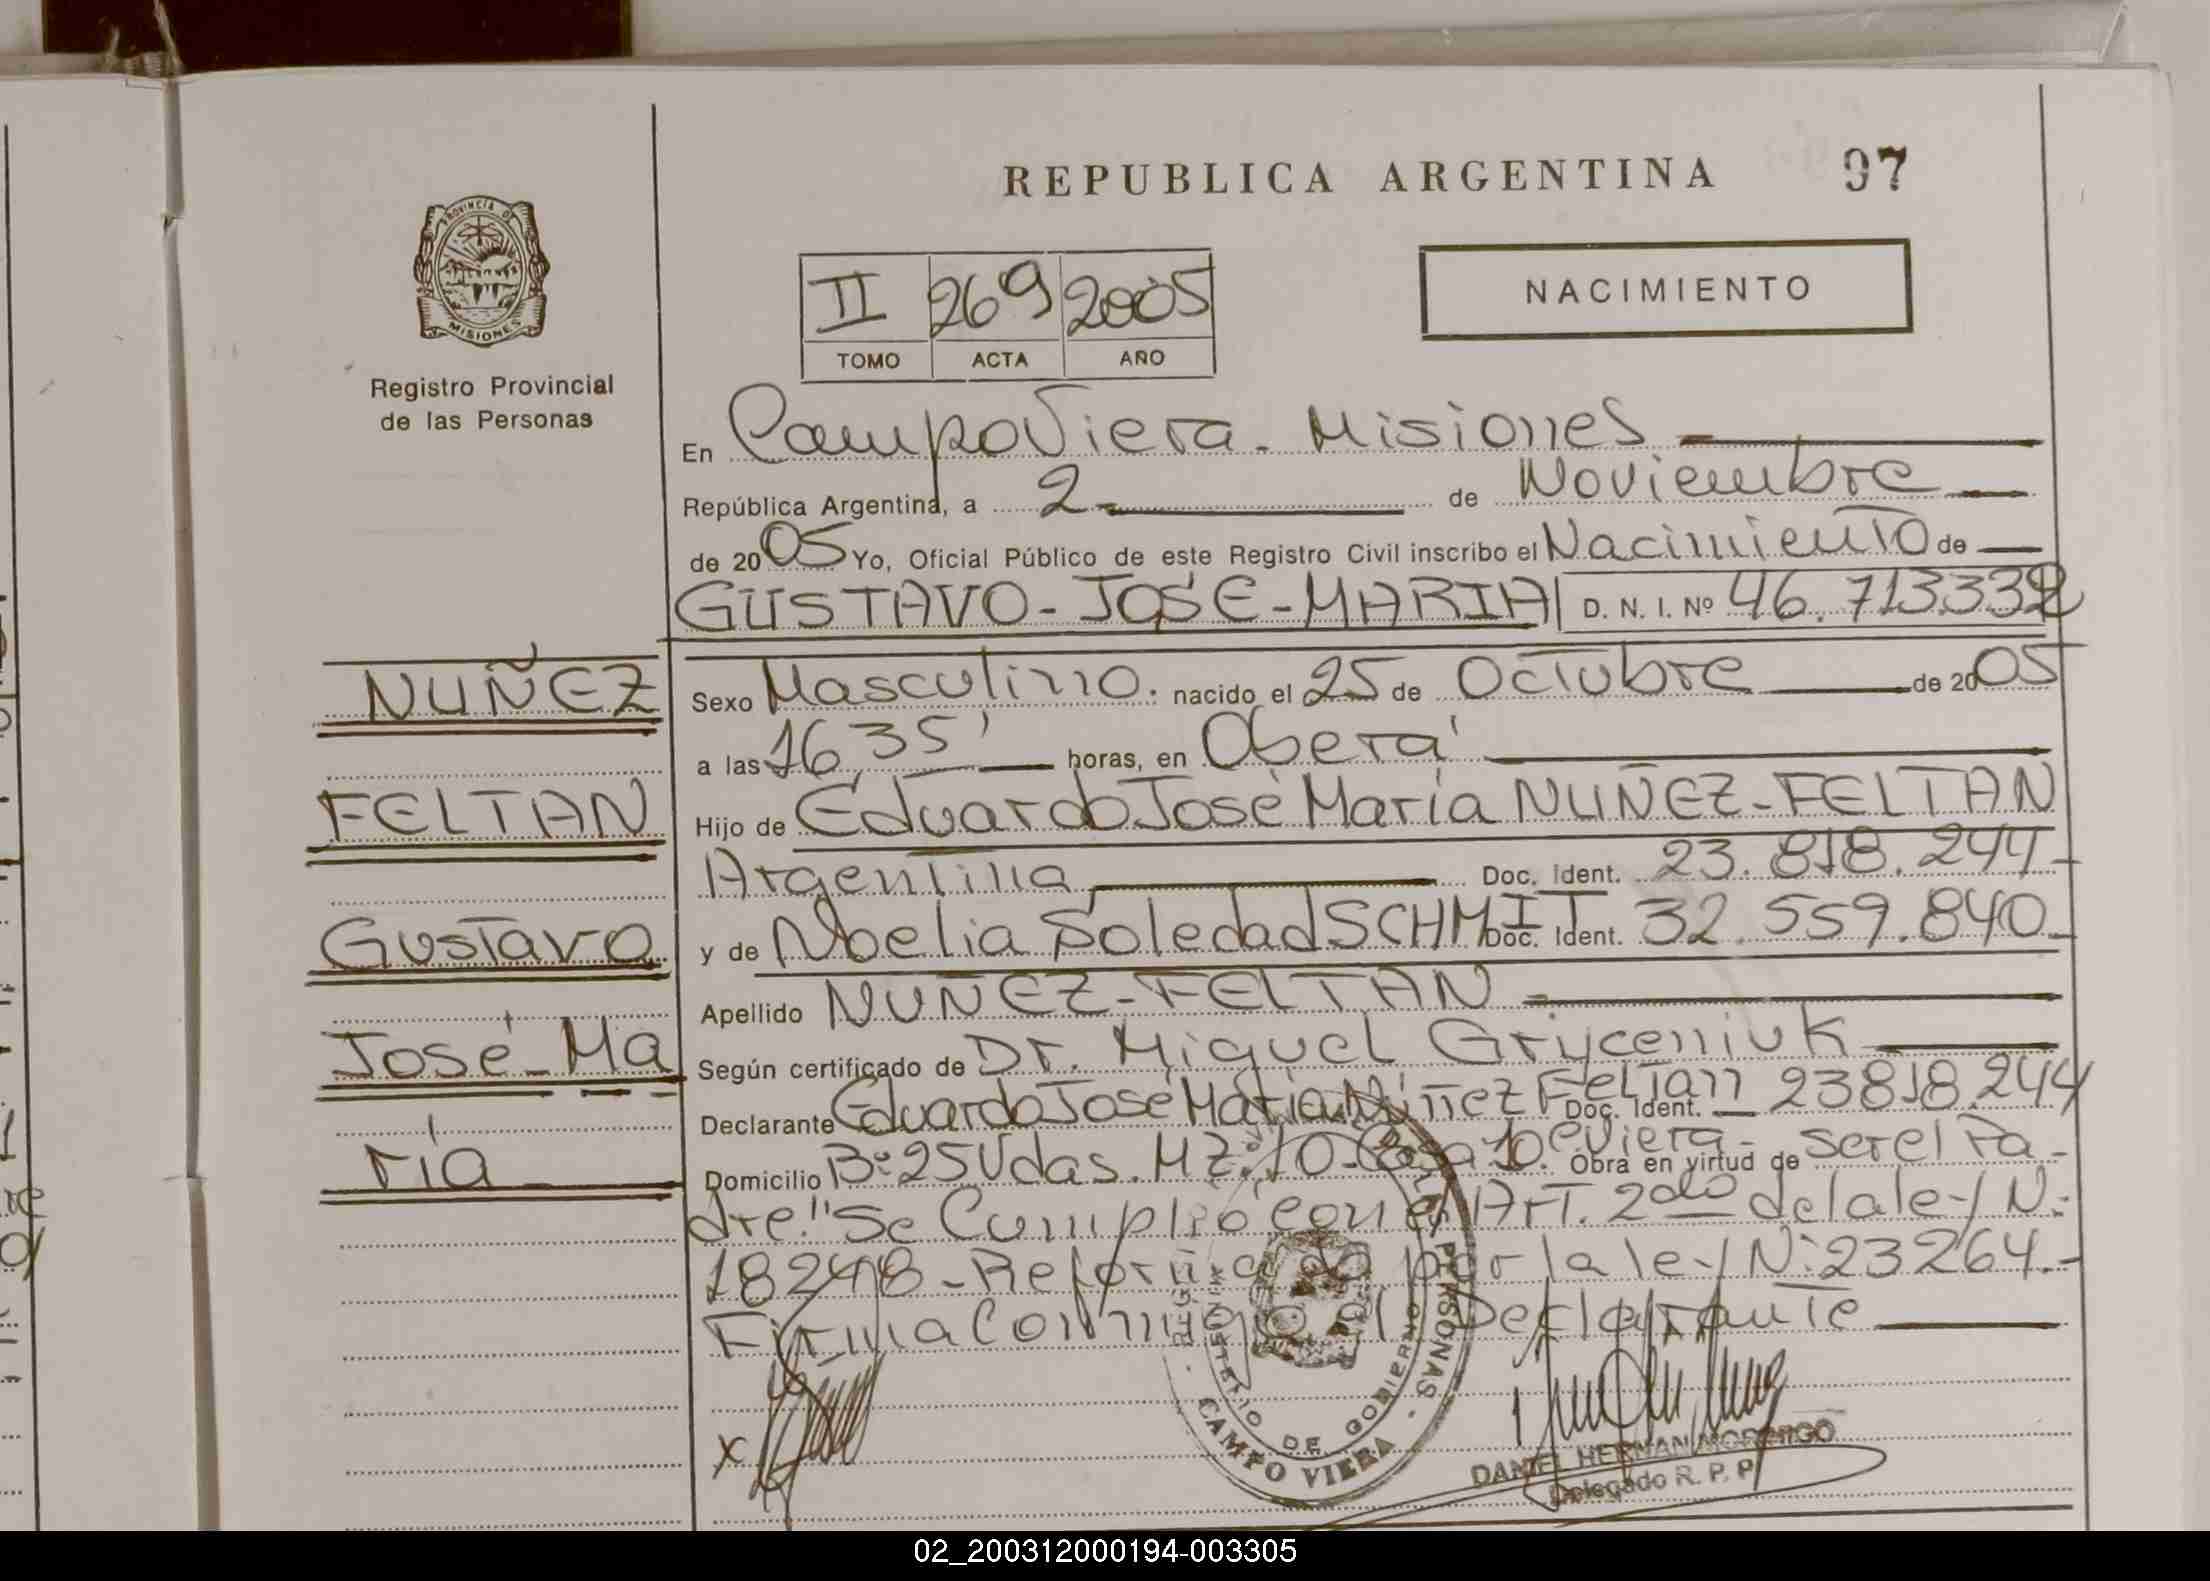 REPUBLICA ARGENTINA 97
PROVINCIA DE
MISIONES
Registro Provincial
de las Personas
NACIMIENTO
II 269 2005
TOMO ACTA AÑO
En Campo Viera - Misiones
República Argentina, a 2 de Noviembre
de 2005 Yo, Oficial Público de este Registro Civil inscribo el Nacimiento de
GUSTAVO - JOSÉ - MARIA D. N. I. Nº 46.713.332
NUÑEZ
FELTAN
Gustavo
José - Ma
ría
Sexo Masculino. nacido el 25 de Octubre de 2005
a las 16,35' horas, en Oberá
Hijo de Eduardo José María NUÑEZ - FELTAN
Argentina Doc. Ident. 23.818.244-
y de Noelia Soledad SCHMIT Doc. Ident. 32.559.840-
Apellido NUÑEZ - FELTAN
Según certificado de Dr. Miguel Gryceniuk
Declarante Eduardo José María Núñez Feltan Doc. Ident. 23818.244
Domicilio Bº 25 Vdas. MZ: 10 - Casa 10. C Viera - Obra en virtud de ser el Pa-
dre." Se Cumplió con el ART. 2do de la ley N:
18248 - Reformado por la ley N: 23264.-
Firma Conmigo el Declarante
X
REG DE LAS PERSONAS
MINISTERIO DE GOBIERNO
CAMPO VIERA
DANIEL HERNAN
Delegado R. P. P.
02_200312000194-003305